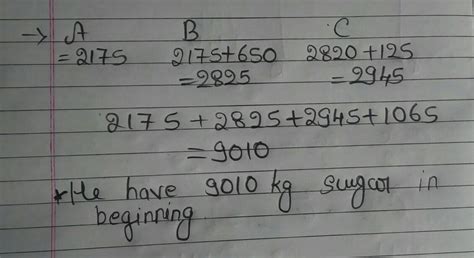 → A B C
=2175 2175+650 2820+125
=2825 =2945
2175+2825+2945+1065
=9010
*He have 9010 kg sugar in
beginning